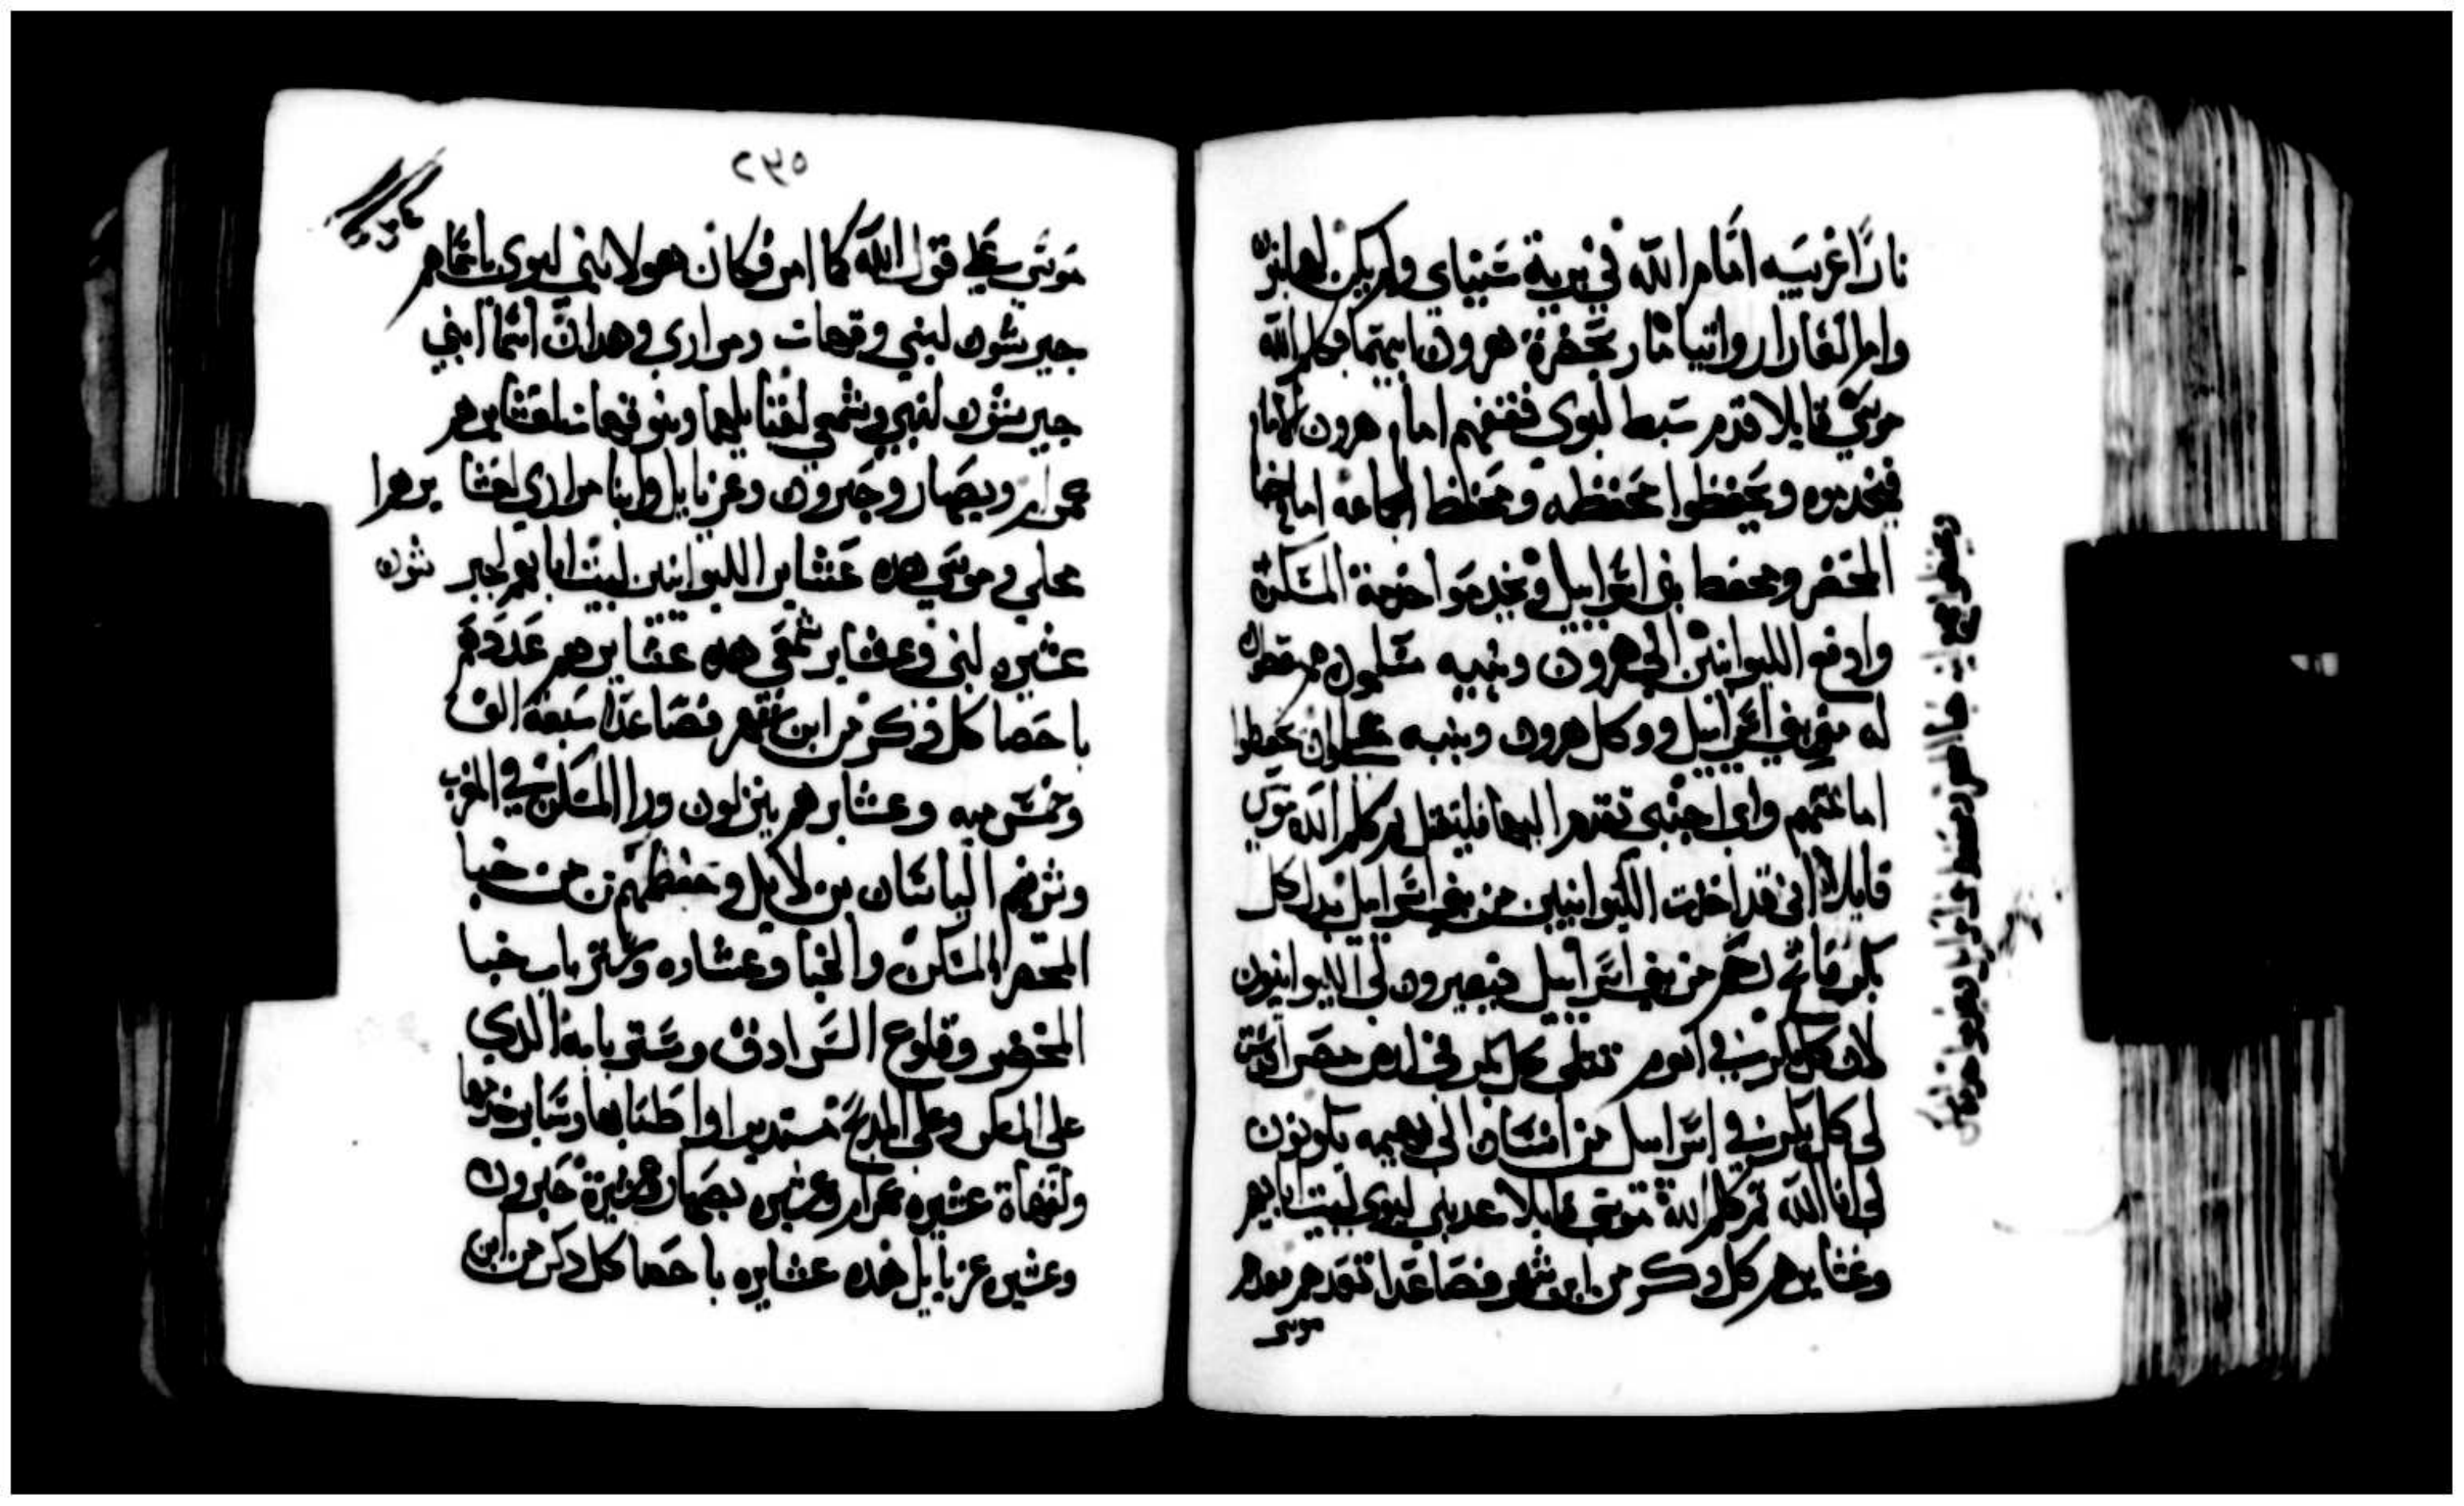 نارًا غريبه امام الله في برية سيناي ولم يكن لهما بنون
واما لعازار واتياما ر بحضرة هرون ابيهما وكلم الله
موسي قايلا قدم سبط ليوي فقفهم امام هرون الامام
فيخدموه ويحفظوا محفظه ومحفظ الجماعة امام خبا
المحضر ومحفط بني اسراييل ويخدموا خدمة المسكن
وادفع الليوانيين الي هرون وبنيه مسلمون هم
له من بني اسراييل ووكل هرون وبنيه علي ان يحفظوا
امامتهم واي اجنبي تقدم اليها فليقتل ثم كلم الله موسي
قايلا اني قد اخدت الليوانيين من بني اسراييل بدل كل
بكر فاتح رحم من بني اسراييل فيصيرون لي الليوانيون
لان كل بكر لي في اليوم قتلي كل بكر في ارض مصر اقدست
لي كل بكر في اسراييل من انسان الي بهيمه يكونون
لي انا الله ثم كلم الله موسي قايلا عد بني ليوي لبيت ابايهم
وعشايرهم كل دكر من ابن شهر فصاعدا تعدهم فعدهم
موسي
٢٣٥
موسي علي قول الله كما امر فكان هولا بني ليوي باسماهم
جيرشون لبني وقهات ومراري وهدان اسما ابني
جيرشون لبني وشمعي لقبايلهما وبنو قهات لعشايرهم
عمرام ويصهار وحبرون وعزياييل وابنا مراري لعشا يرهم ا
محلي وموسي هده عشاير الليوانيين لبيت ابايهم لجير شون
عشيره لبني وعشاير شمعي هده عشايرهم عددهم
باحصا كل ذكر من ابن شهر فصاعدا سبعة الف
وخمس ميه وعشايرهم ينزلون ورا المسكن في المغرب
وشريفهم الياساف بن لايل وحفظهم من خبا
المحضر المسكن والخبا وغشاوه وستر باب خبا
المحضر وقلوع السرادق وستر بابه الدي
علي المسكن وعلي المدبح مستديرا واطنابها وساير خدمتها
ولقهاة عشيره عمرام وعشيره يصهار وعشيرة حبرون
وعشيره عزياييل هده عشايره باحصا كل دكر من ابن